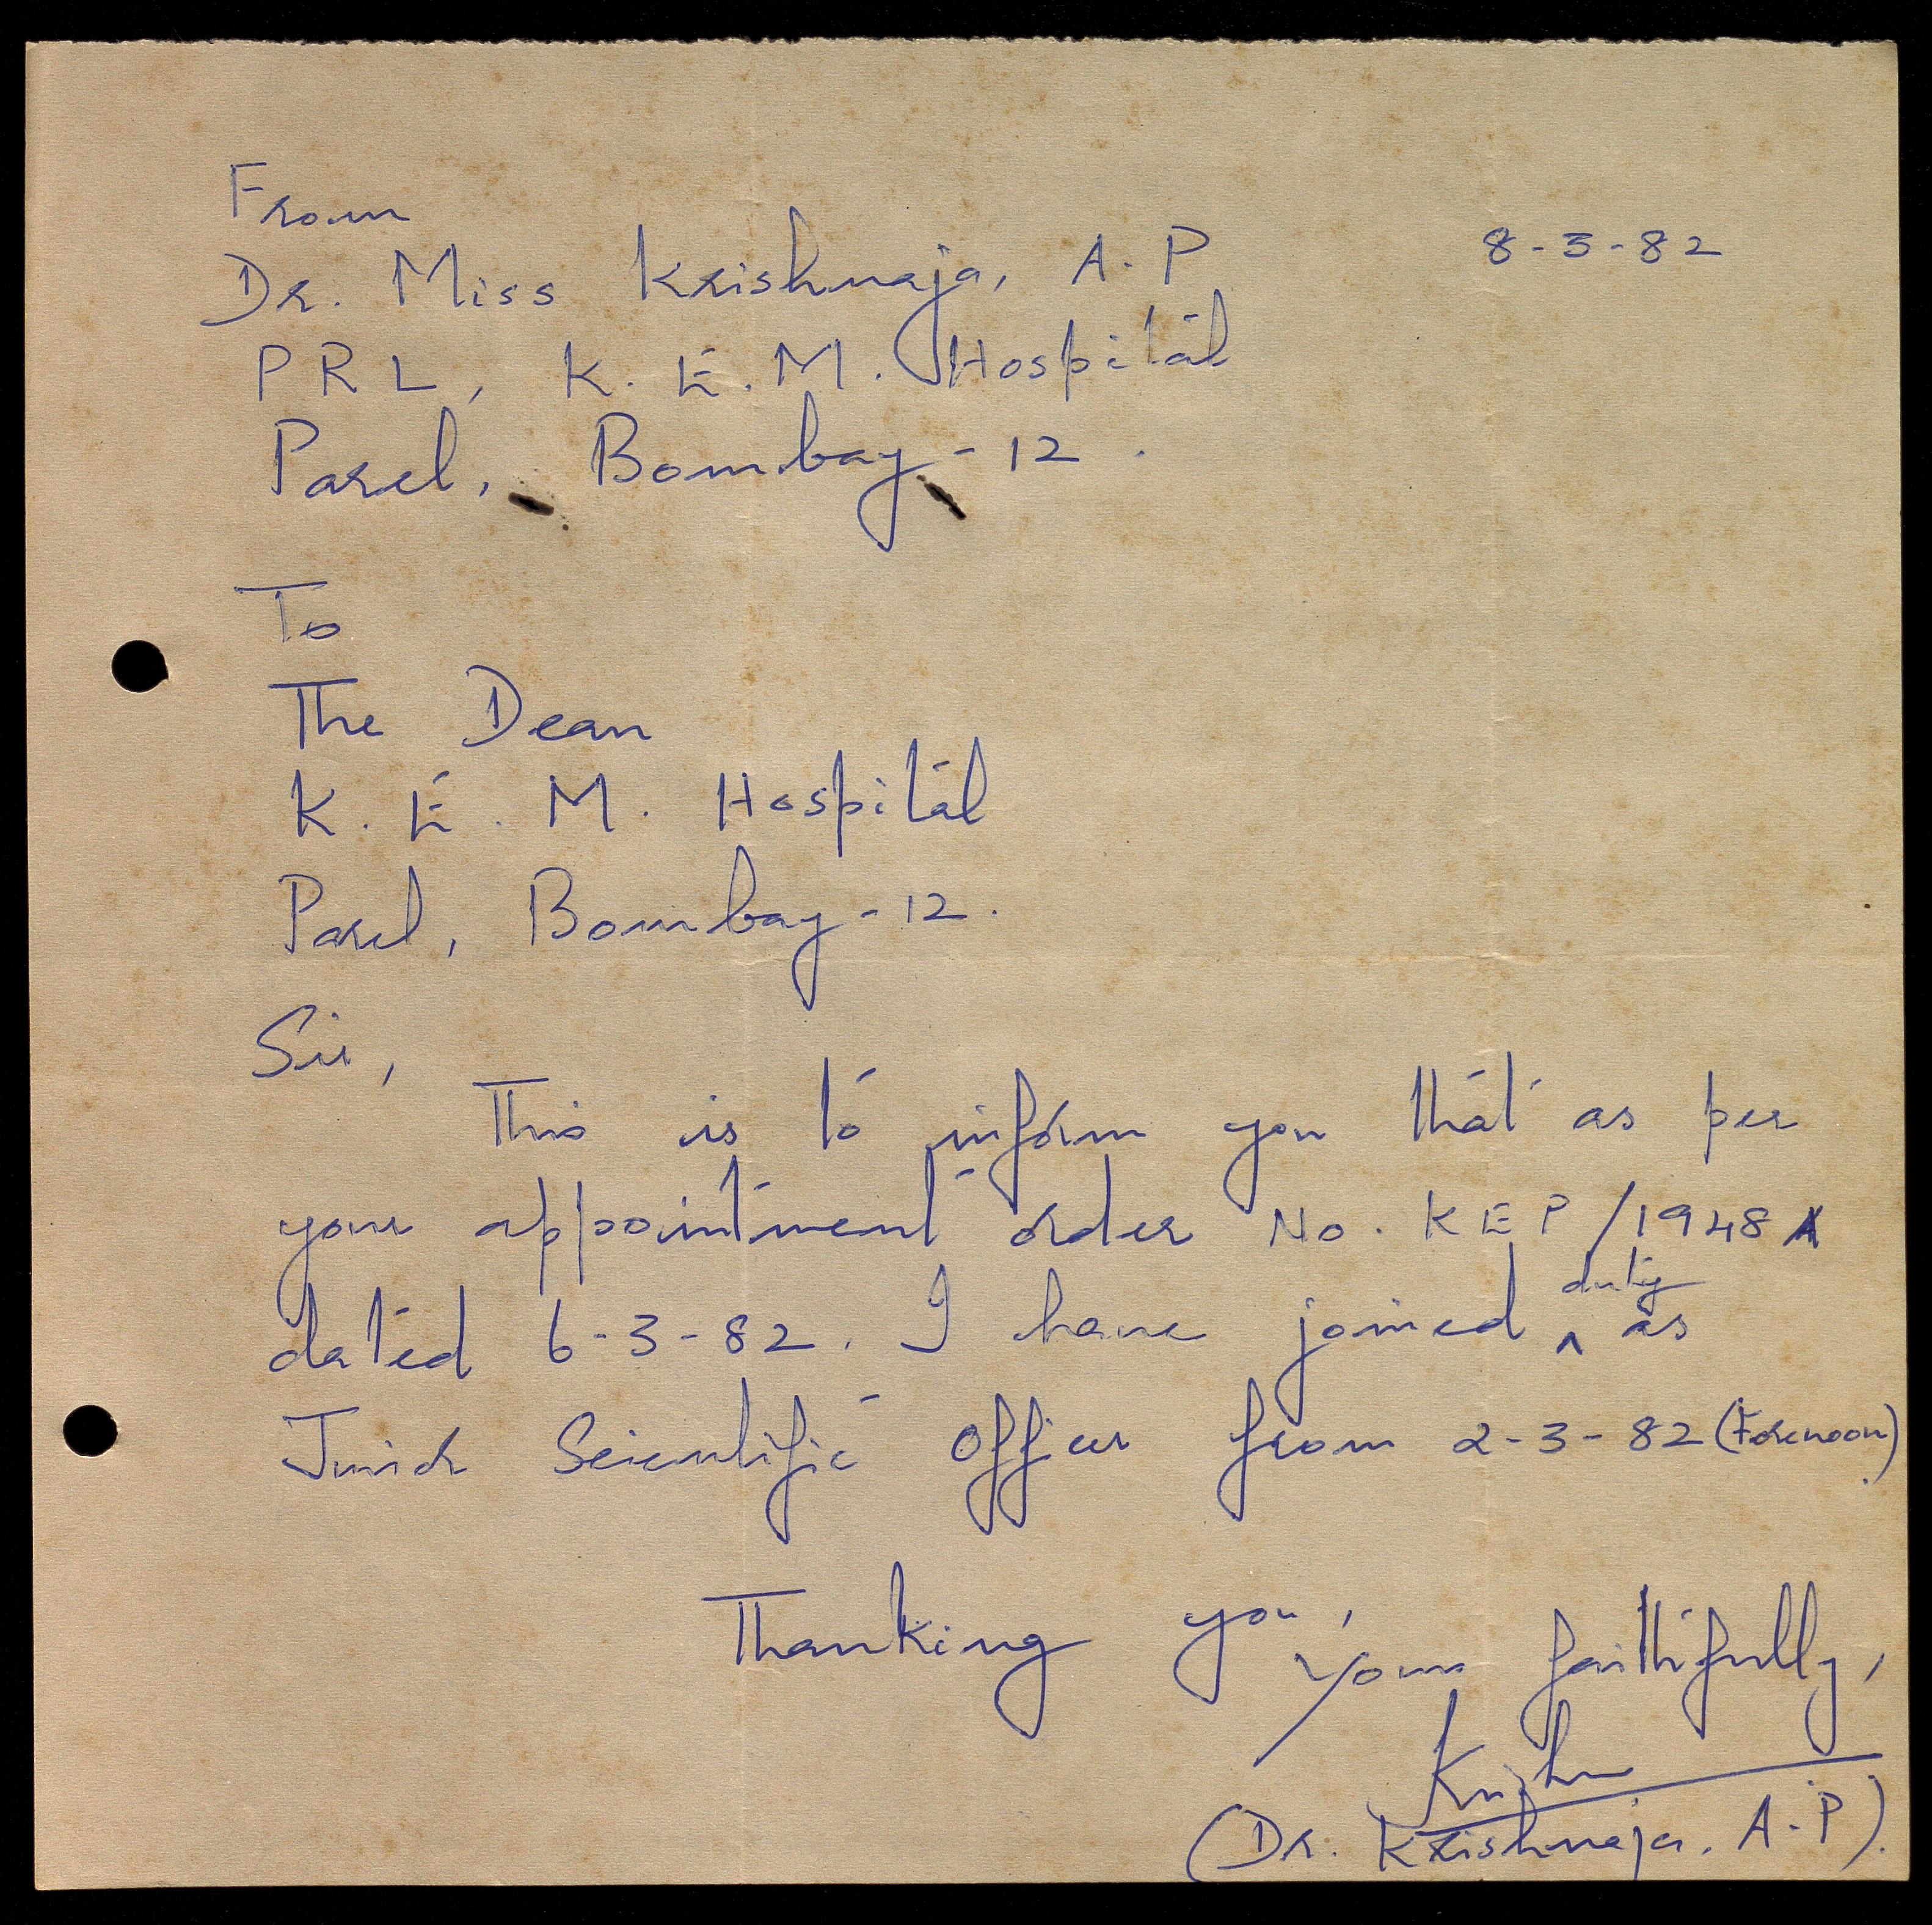 From
Dr. Miss Krishnaja, A. P 8-3-82
PRL, K. E. M. Hospital
Parel, Bombay - 12.
To
The Dean
K. E. M. Hospital
Parel, Bombay - 12.
Sir,
This is to inform you that as per
your appointment order No. KEP/1948A
dated 6-3-82. I have joined duty as
Junior Scientific Officer from 2-3-82 (Forenoon).
Thanking you,
Yours faithfully,
Krishna
(Dr. Krishnaja. A. P).